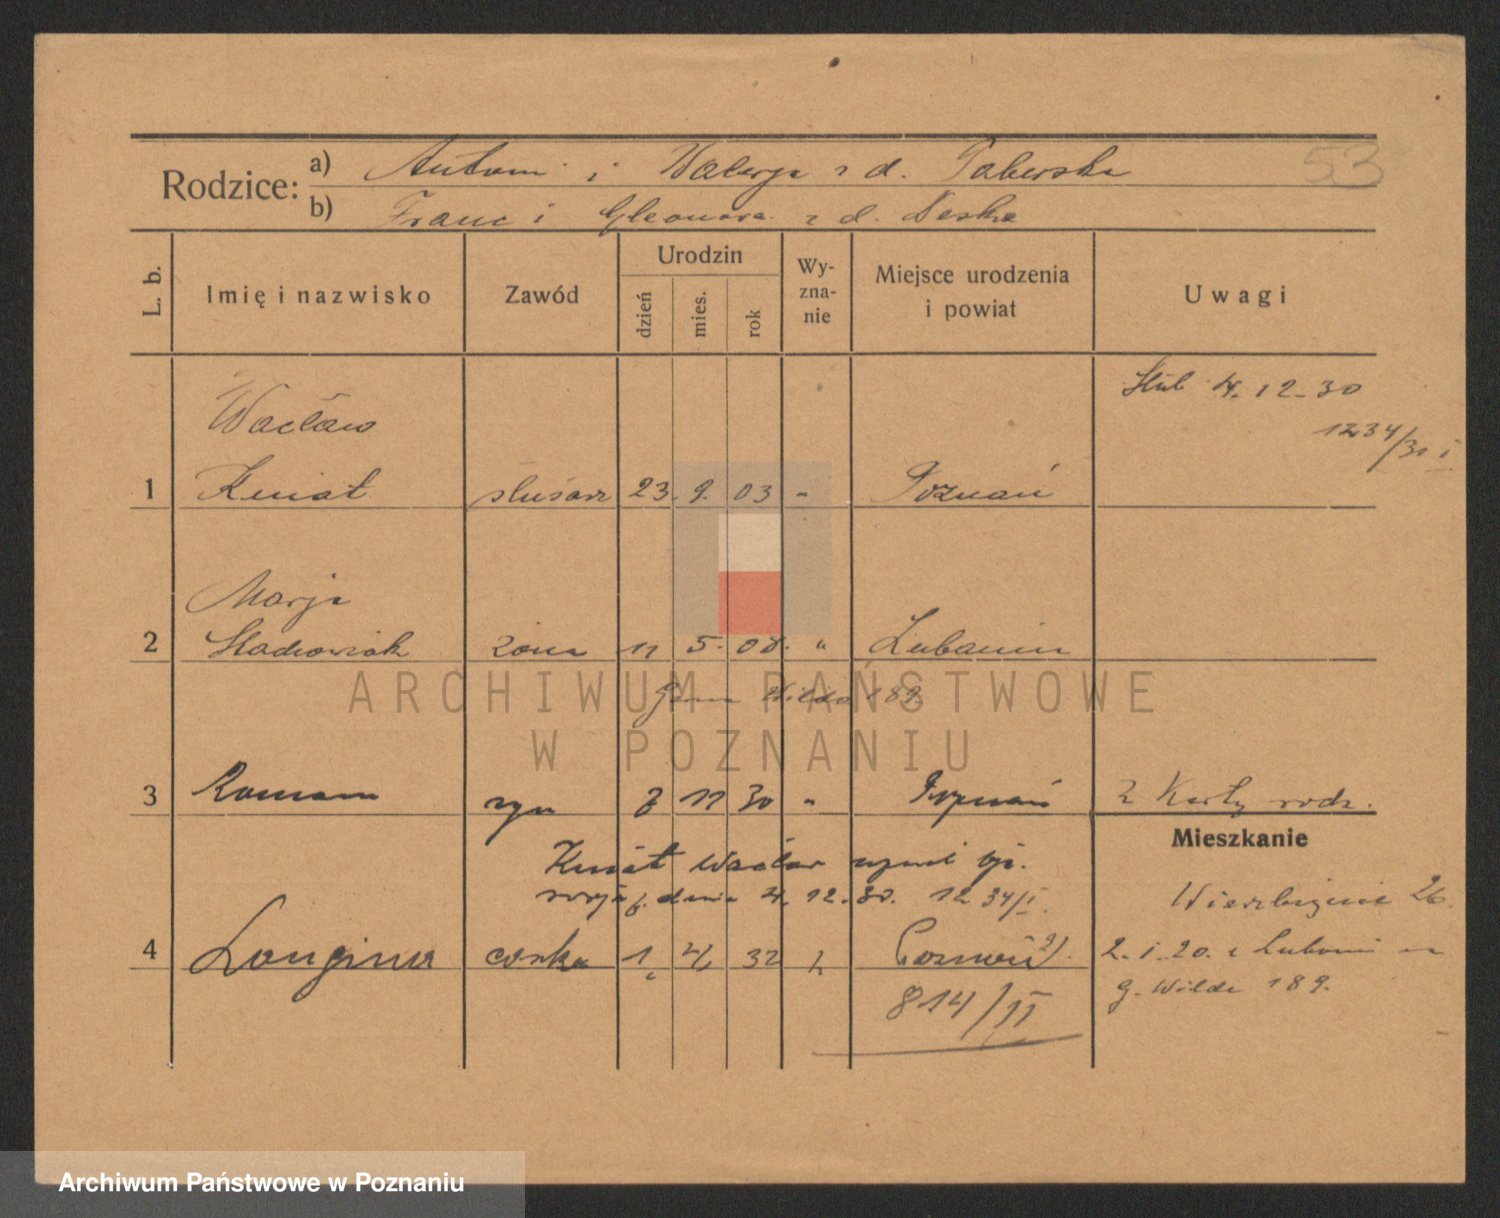 53
Rodzice: a) Antoni i Walerja z d. Taberska
b) Franc i Eleonora z d. Neske
L. b. Imię i nazwisko Zawód Urodzin dzień mies. rok Wyznanie Miejsce urodzenia i powiat Uwagi
Ślub 4. 12 - 30
1234/30 I
Wacław
1 Kniat ślusarz 23. 9. 03 " Poznań
Marja
2 Stachowiak żona 11 5. 08. " Lubonin
Górna Wilda 189
3 Roman syn 8 11 30 " Poznań 2 Karty rodz.
Mieszkanie
Kniat Wacław uznał
dnia 4. 12. 30. 1234/I.
Wierzbięcice 26.
4 Longina córka 1 4 32 Poznań 2). 2. 1. 20. z Luboni
G. Wilda 189.
814/II
ARCHIWUM PAŃSTWOWE
W POZNANIU
Archiwum Państwowe w Poznaniu